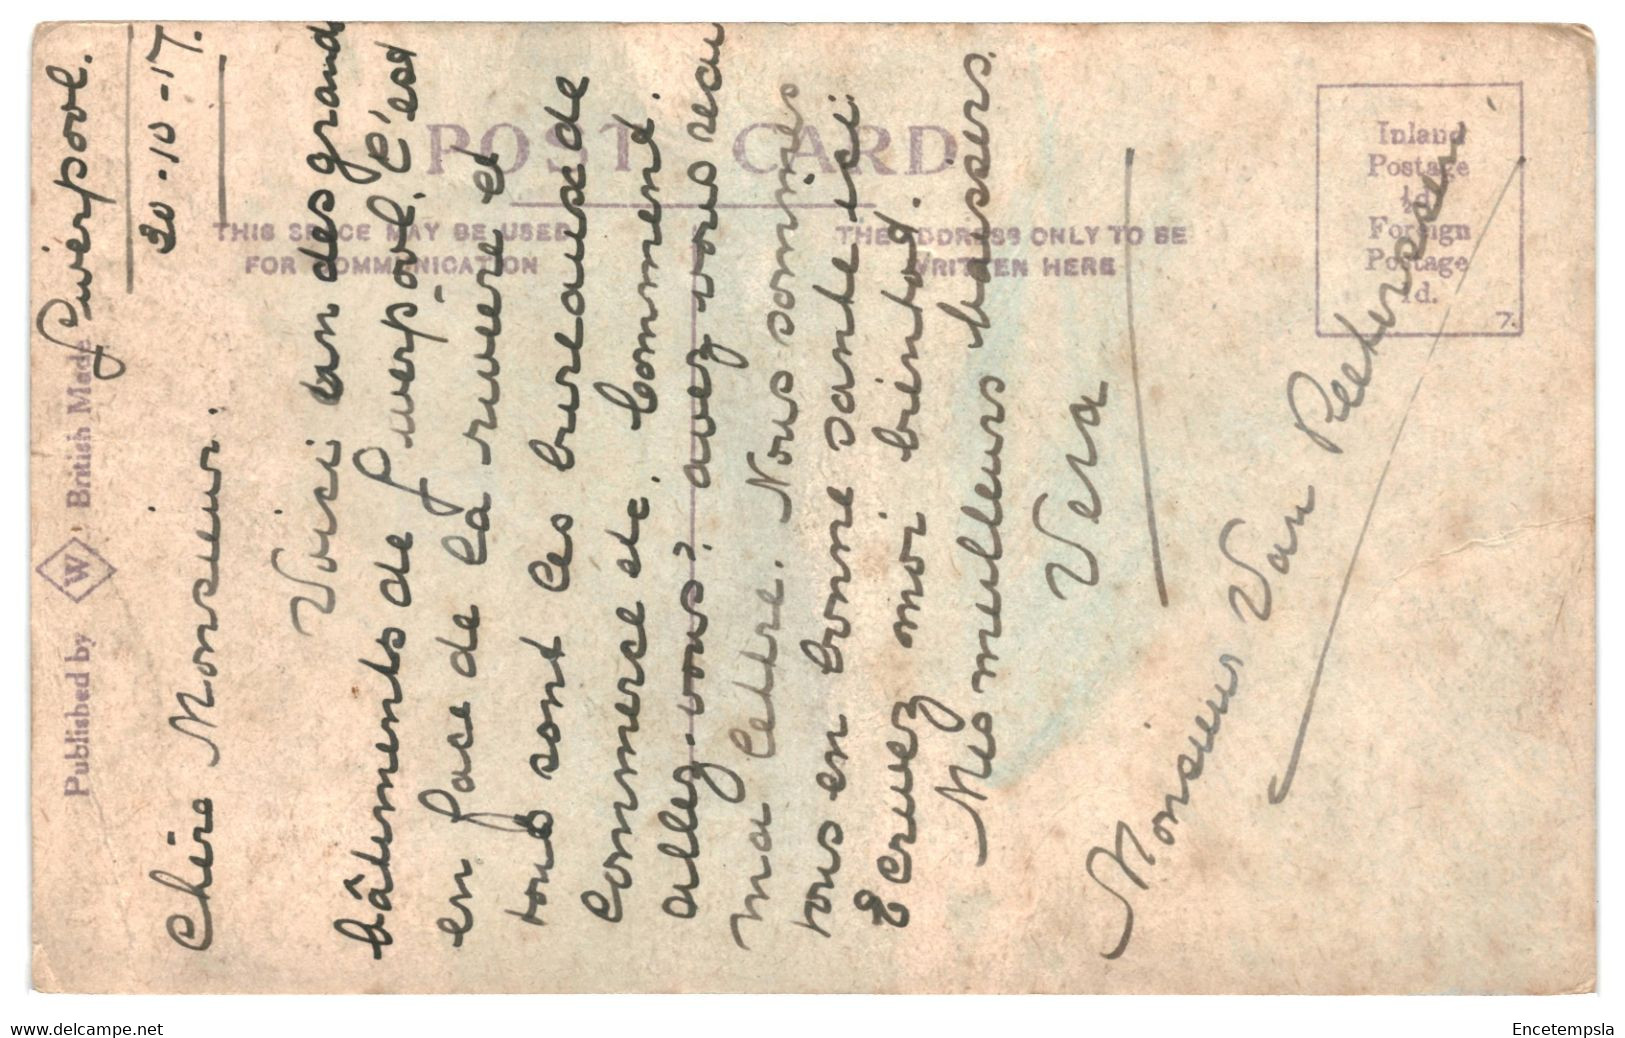 Liverpool.
20-10-17.
Chère Monsieur.
Voici un des grand
bâtiments de Liverpool. C'est
en face de la rivière et
tout sont les bureause de
Commerse etc. Comment
allez-vous? avez vous recu
ma lettre. Nous sommes
tous en bonne sante ici
Ecruez moi bientot.
Mes meilleurs baissers.
Vera
Monsieur Van
POST CARD
THIS SPACE MAY BE USED
FOR COMMUNICATION
THE ADDRESS ONLY TO BE
WRITTEN HERE
Inland
Postage
½d.
Foreign
Postage
1d.
7.
Published by W British Made
www.delcampe.net
Encetempsla